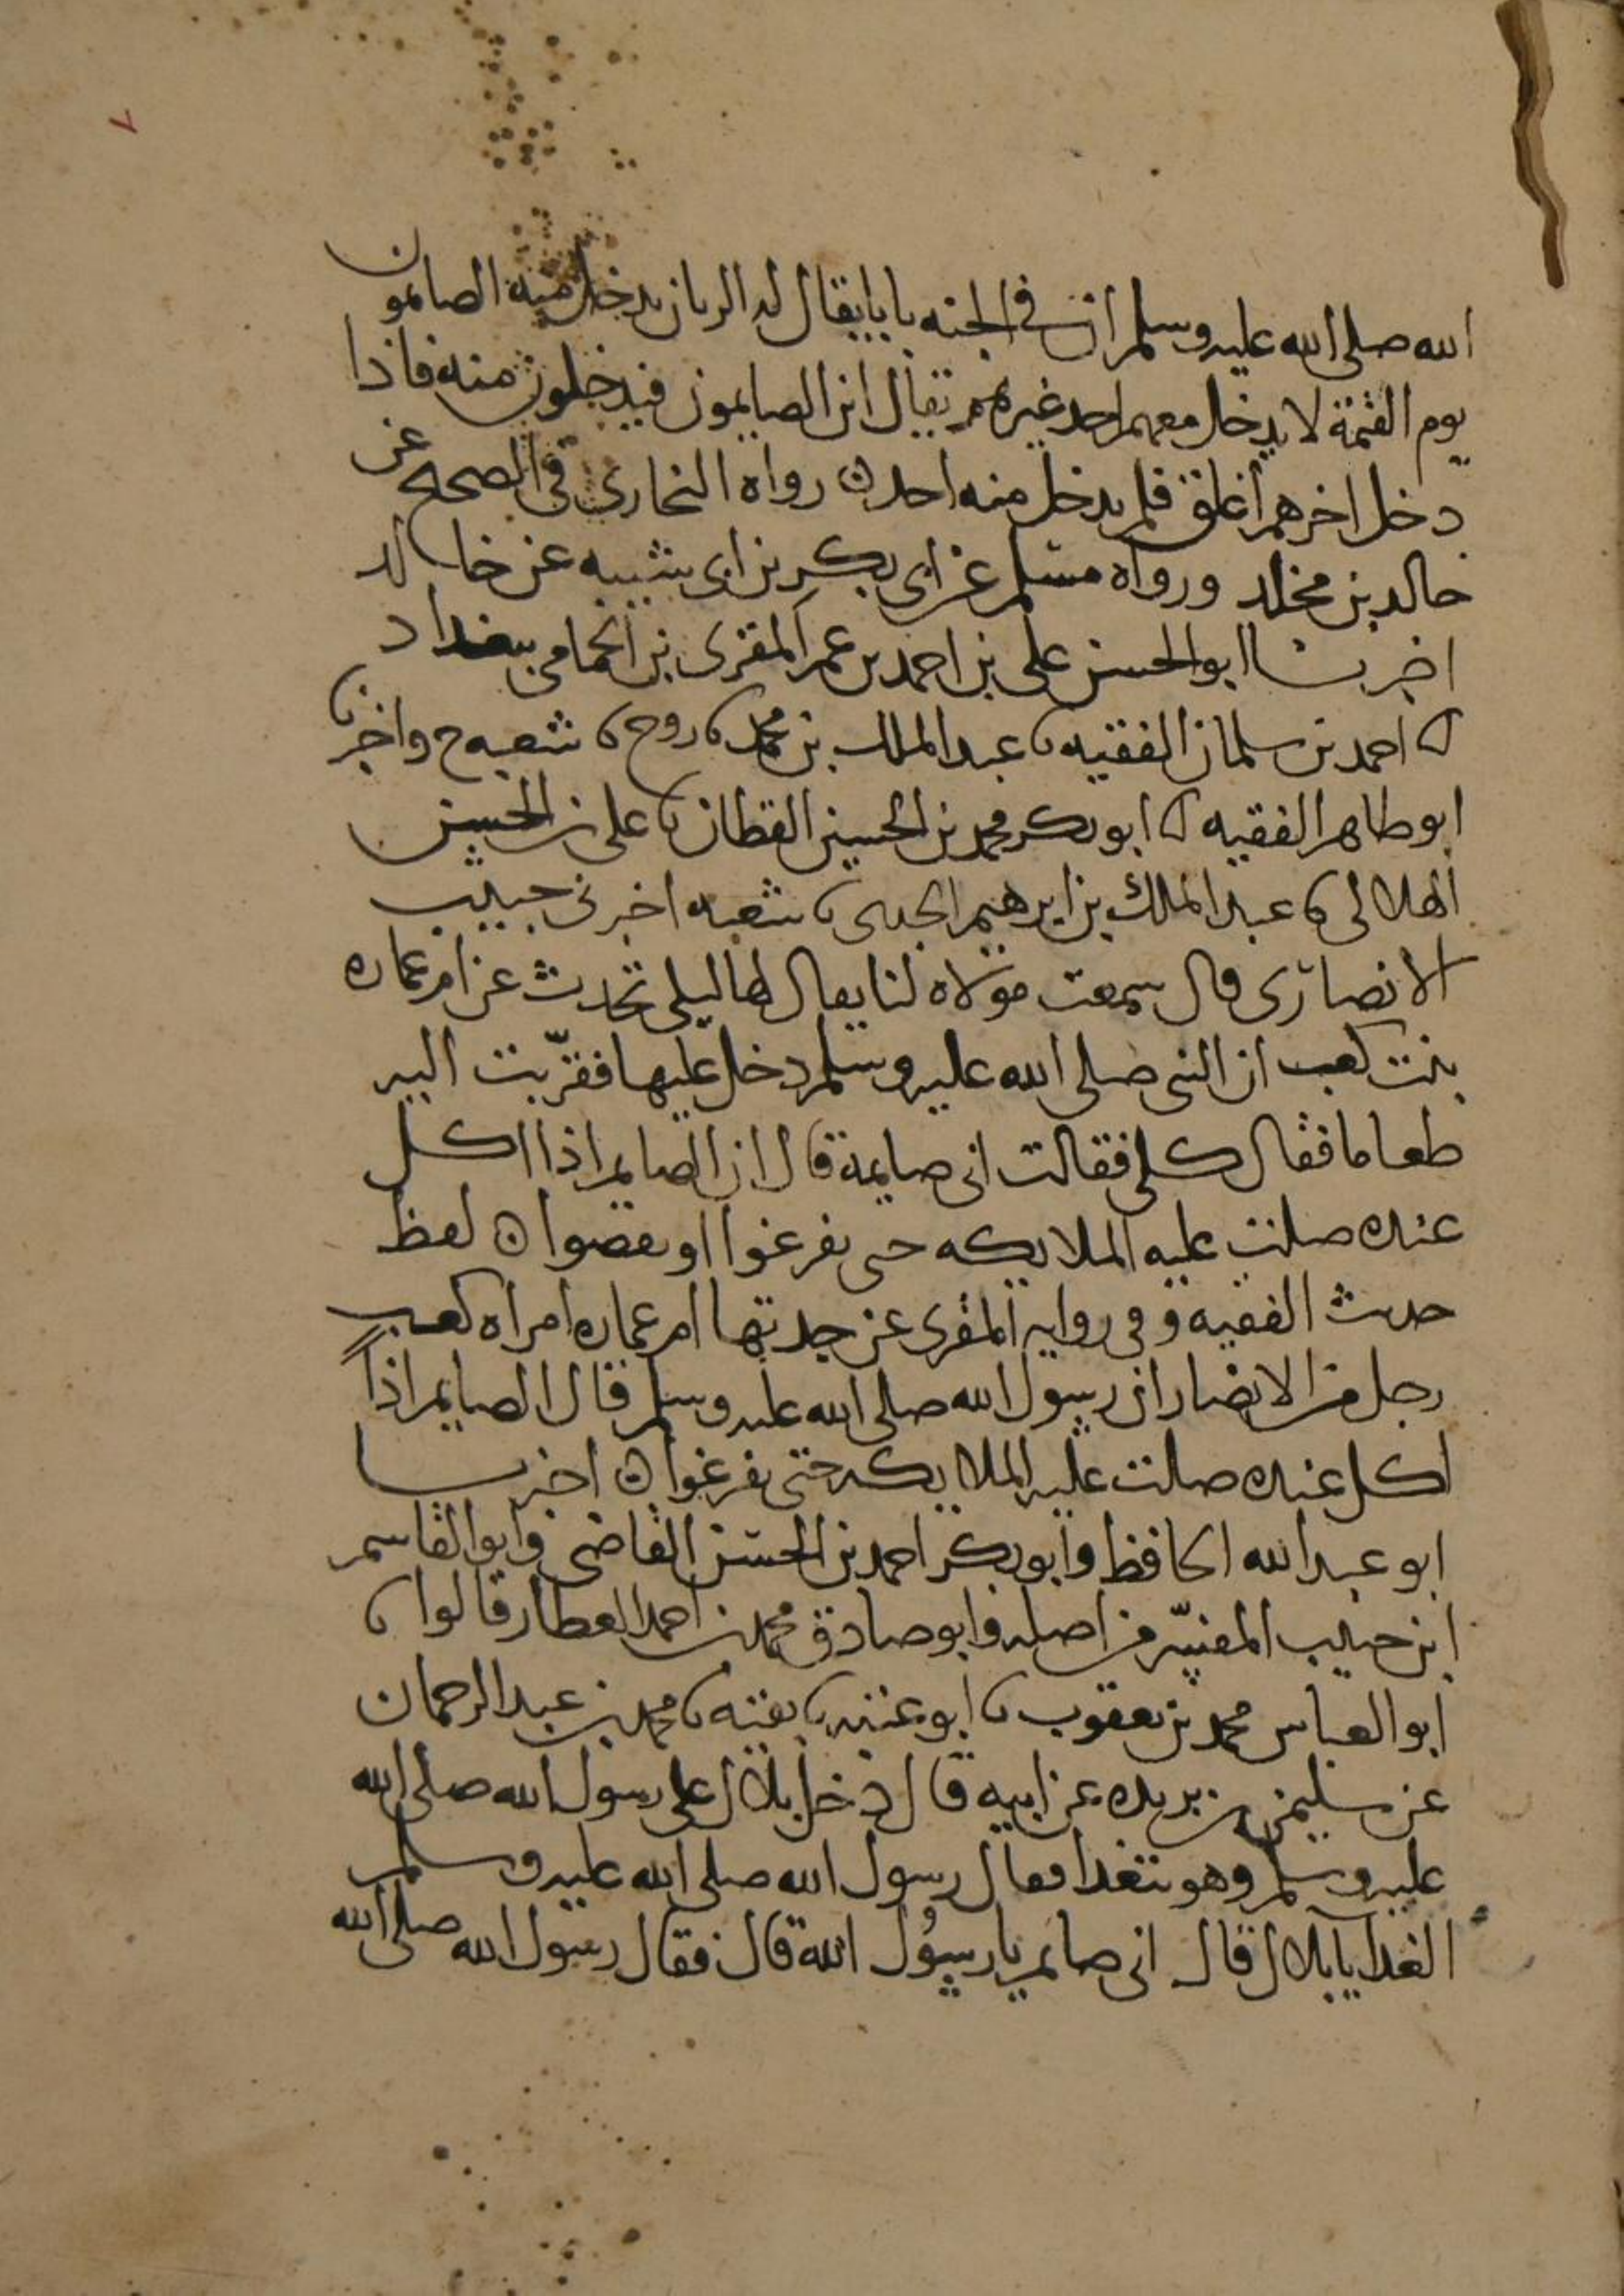 ٧
الله صلى الله عليه وسلم ان في الجنه بابا يقال له الريان يدخل منه الصائمون
يوم القيمة لا يدخل معهم احد غيرهم يقال اين الصايمون فيدخلون منه فاذا
دخل اخرهم أغلق فلم يدخل منه احد ن رواه البخاري في الصحيح عن
خالد بن مخلد ورواه مسلم عن ابي بكر بن ابي شيبه عن خالد
اخبرنا ابو الحسن علي بن احمد بن عمر المقرى بن الحمامي ببغداد
نا احمد بن سلمان الفقيه نا عبد الملك بن محمد نا روح نا شعبه ح واخبرنا
ابو طاهر الفقيه نا ابو بكر محمد بن الحسين القطان نا علي بن الحسين
الهلالي نا عبد الملك بن ابرهيم الجدي نا شعبه اخبرني حبيب
الانصاري قال سمعت مولاه لنا يقال لها ليلى تحدث عن ام عماره
بنت كعب ان النبي صلى الله عليه وسلم دخل عليها فقرّبت اليه
طعاما فقال كلي فقالت اني صايمة قال ان الصايم اذا اكل
عنده صلت عليه الملايكه حتى يفرغوا او يقضوا ن لفظ
حديث الفقيه و في روايه المقرى عن جدتها ام عماره امراه كعب
رجل من الانصار ان رسول الله صلى الله عليه وسلم قال الصايم اذا
اكل عنده صلت عليه الملايكه حتى يفرغوا ن اخبرنا
ابو عبد الله الحافظ وابو بكر احمد بن الحسن القاضي وابو القاسم
ابن حبيب المفسّر من اصله وابو صادق محمد بن احمد العطار قالوا نا
ابو العباس محمد بن يعقوب نا ابو عتبه نا بقيه نا محمد بن عبد الرحمان
عن سليمن بن بريده عن ابيه قال دخل بلال على رسول الله صلى الله
عليه وسلم وهو يتغدا فقال رسول الله صلى الله عليه وسلم
الغدا يا بلال قال اني صايم يا رسُول الله قال فقال رسول الله صلى الله